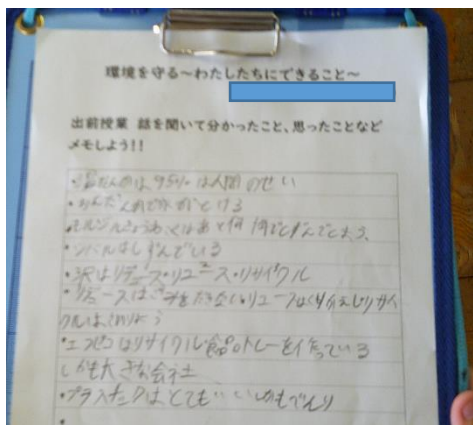 環境を守る~わたしたちにできること~
出前授業 話を聞いて分かったこと、思ったことなど
メモしよう!!
・温だん化は95%は人間のせい
・おんだん化で氷がとける
・ツバルはしずんでいる
・3Rはリデュース・リユース・リサイクル
・リデュースはごみをださないリユースはくりかえしリサイ
クルは
・エフピコはリサイクル食品トレーを作っている
しかも大きな会社
・プラスチックはとてもいいしかもべんり